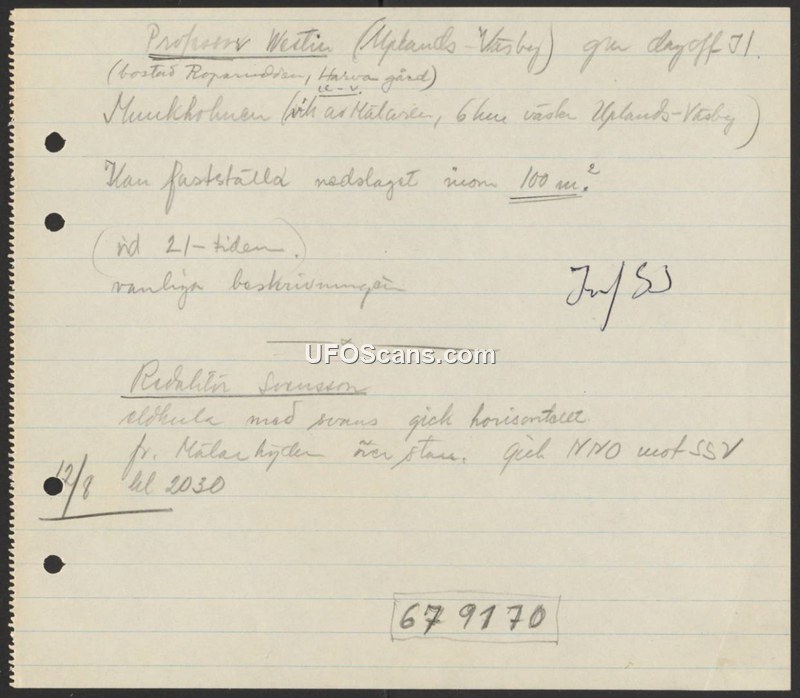 Professor Westin (Uplands-Väsby) gm dagoff
(bostad Roparudden, Harva gård)
Munkholmen (vik av Mälaren, 6 km väster Uplands-Väsby)
Kan fastställa nedslaget inom 100 m.²
(vid 21-tiden.)
vanliga beskrivningen
UFOScans.com
Redaktör Svensson
eldkula med svans gick horisontellt
fr. Mälarhöjden över stan. Gick NNO mot SSV
12/8 kl 2030
679170